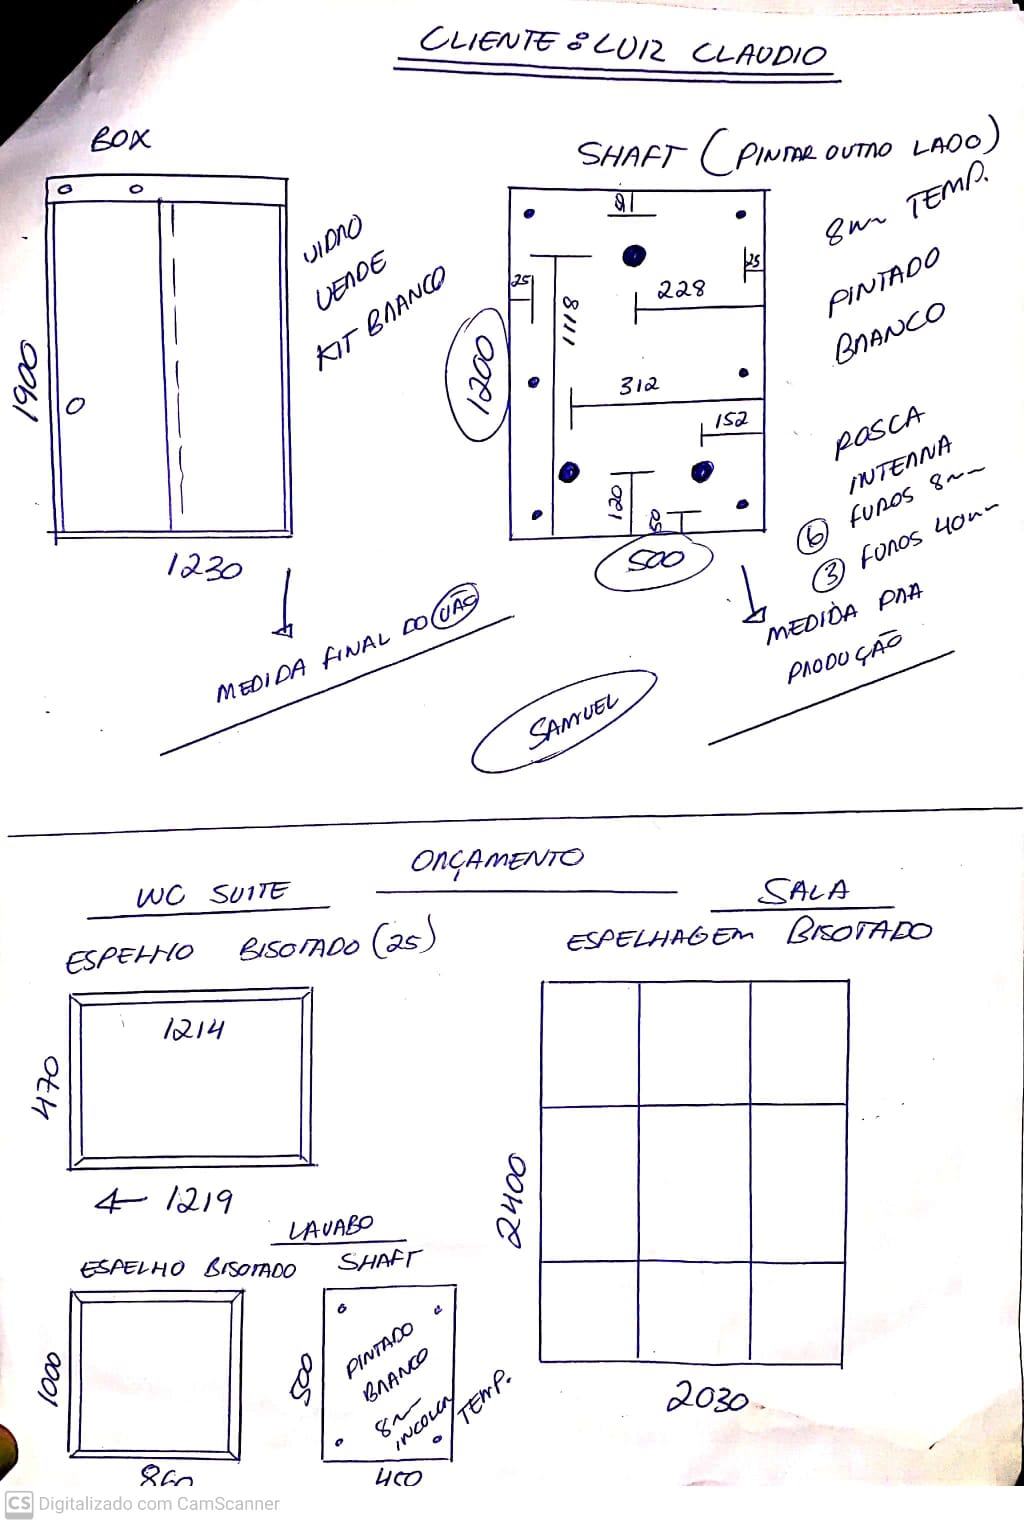 CLIENTE: LUIZ CLAUDIO
BOX
1900
1230
VIDRO
VERDE
KIT BRANCO
MEDIDA FINAL DO VÃO
SHAFT (PINTAR OUTRO LADO)
8mm TEMP.
PINTADO
BRANCO
25
25
228
1118
312
152
120
50
1200
500
ROSCA
INTERNA
6 FUROS 8mm
3 FUROS 40mm
MEDIDA PRA
PRODUÇÃO
SAMUEL
ORÇAMENTO
WC SUITE
ESPELHO BISOTADO (25)
1214
470
← 1219
SALA
ESPELHAGEM BISOTADO
2400
2030
LAVABO
ESPELHO BISOTADO
1000
860
SHAFT
500
PINTADO
BRANCO
8mm
INCOLOR TEMP.
400
CS Digitalizado com CamScanner